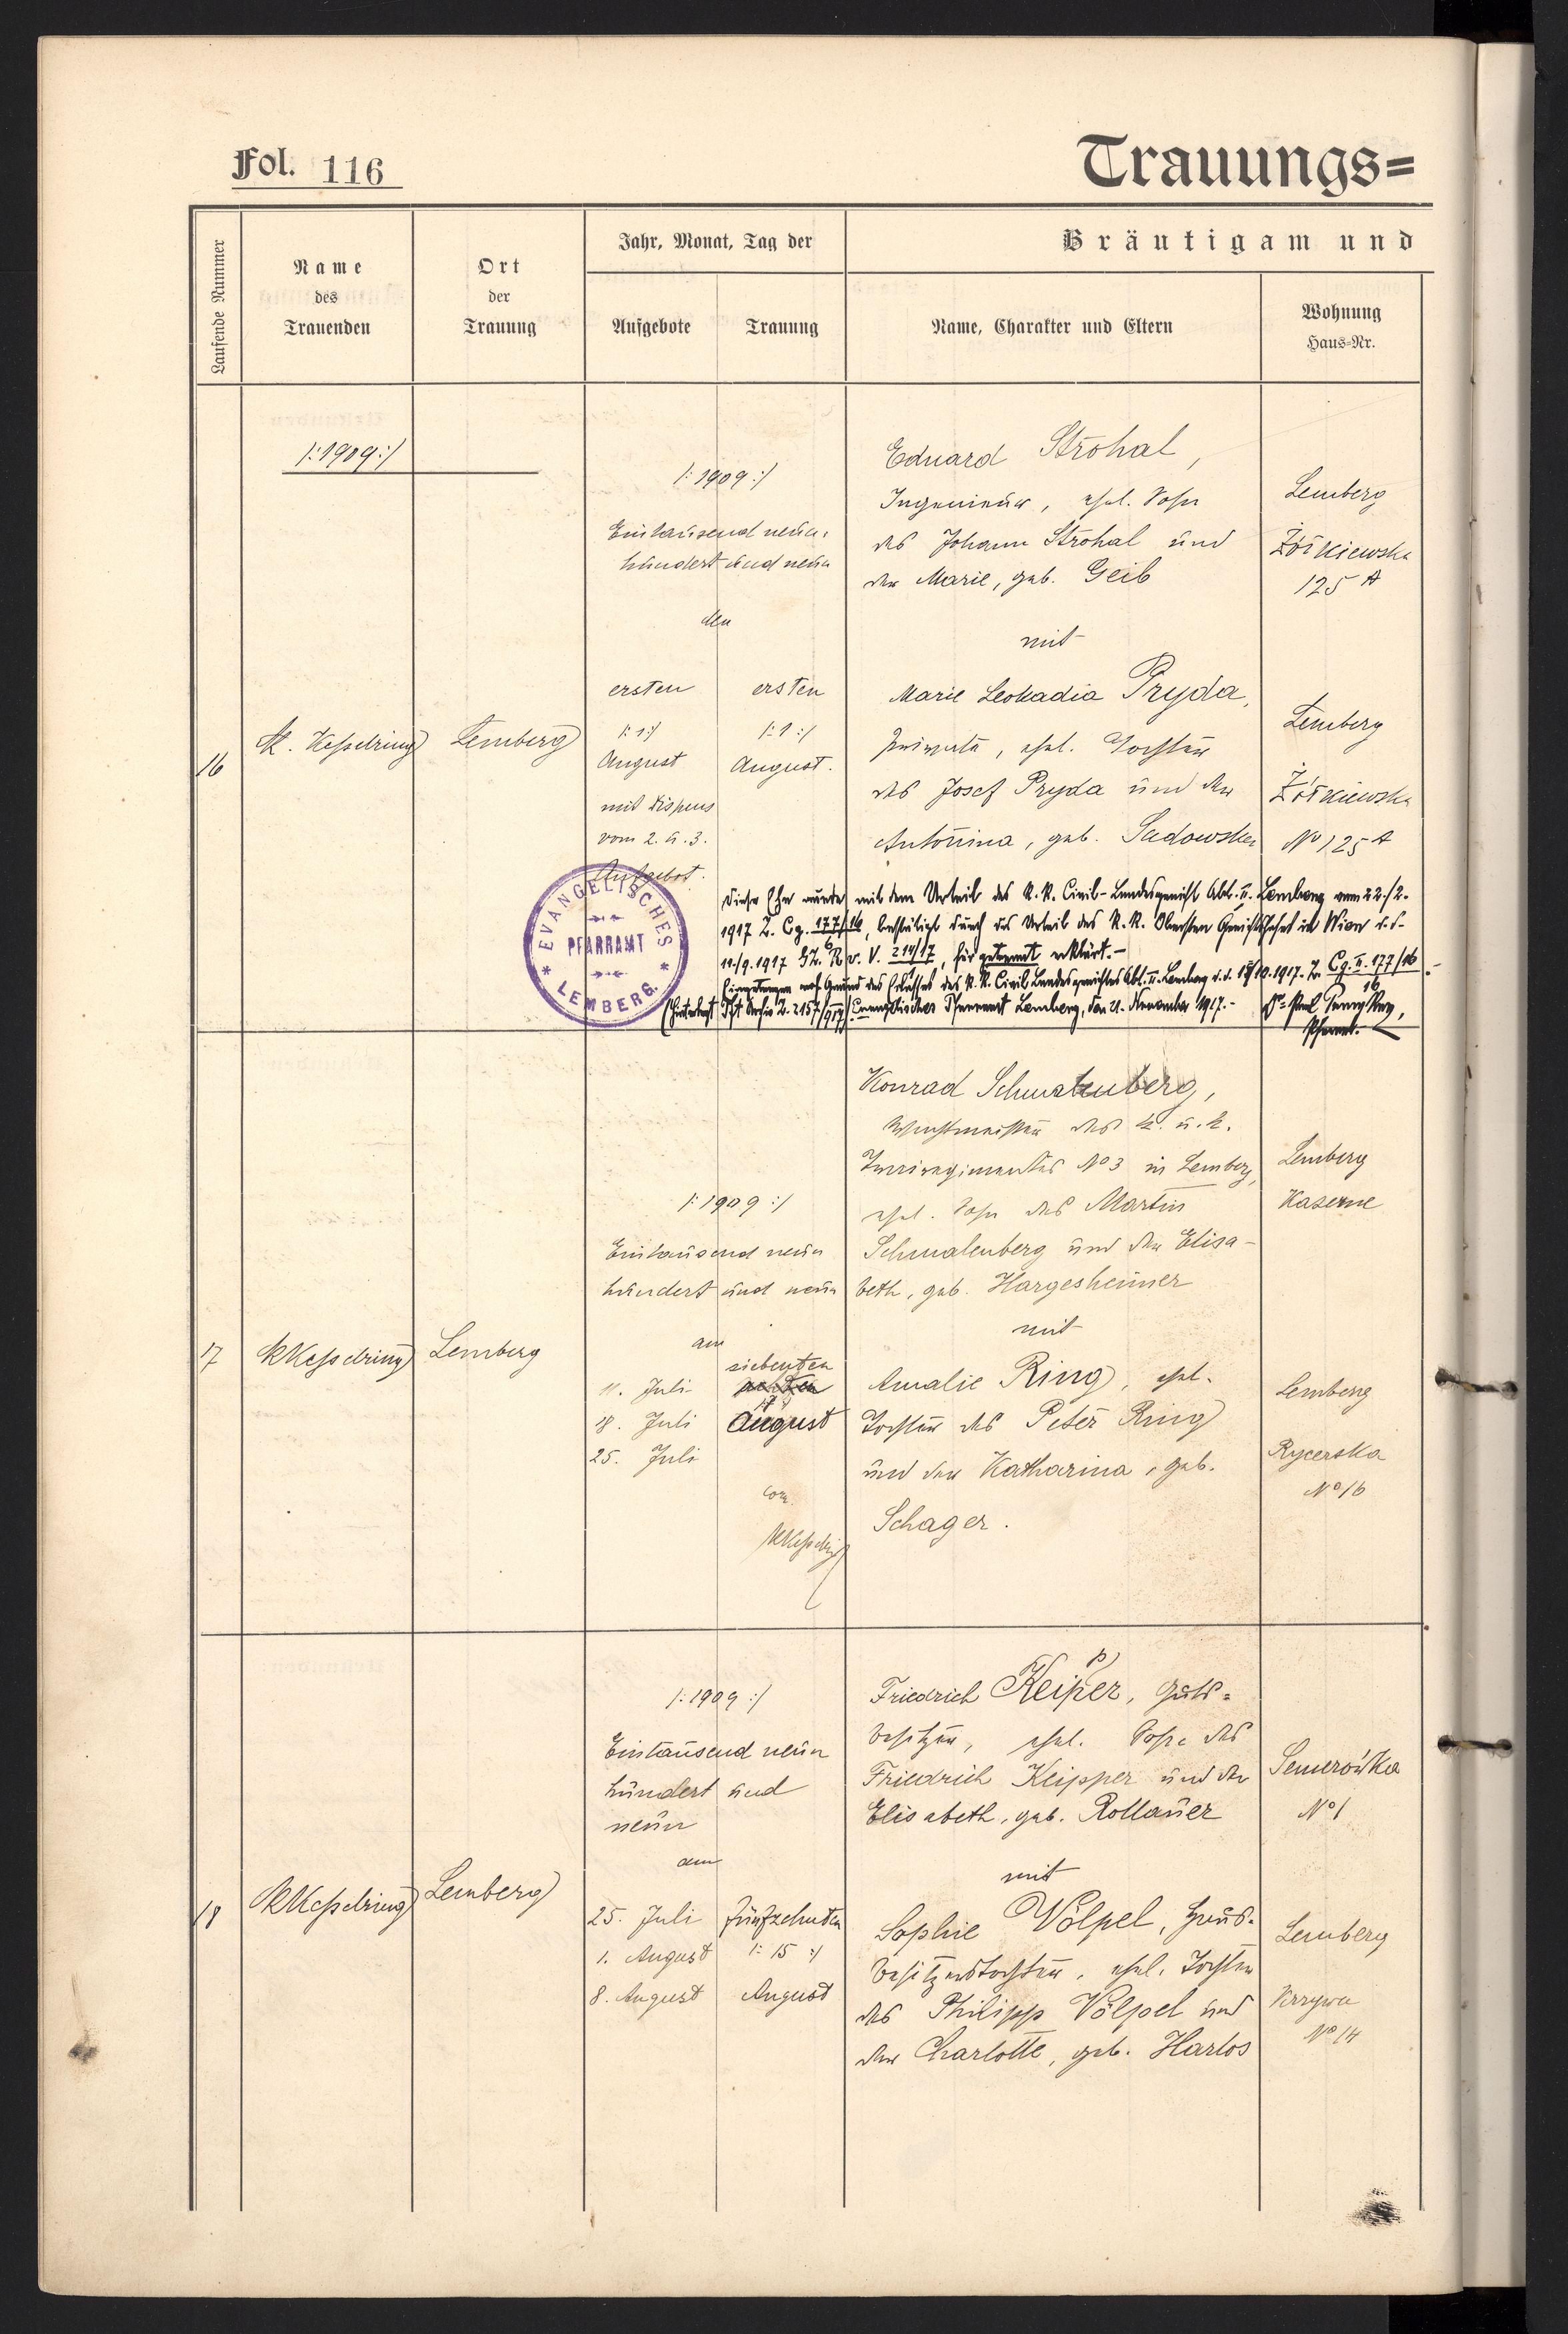 Fol. 116
Trauungs=
Laufende Nummer
Name
des
Trauenden
Ort
der
Trauung
Jahr, Monat, Tag der
Aufgebote
Trauung
Bräutigam und
Name, Charakter und Eltern
Wohnung
Haus=Nr.
/:1909:/
16
K. Kesselring
Lemberg
/:1909:/
Eintausend neun-
hundert und neun
den
ersten
/:1:/
August
mit Dispens
vom 2. u. 3.
Aufgebot.
ersten
/:1:/
August.
Eduard Strohal,
Ingenieur, ehel. Sohn
des Johann Strohal und
der Marie, geb. Geib
mit
Marie Leokadia Pryda,
Private, ehel. Tochter
des Josef Pryda und der
Antonina, geb. Sadowska
Lemberg
Żółkiewska
125 A
Lemberg
Żółkiewska
No 125 A
EVANGELISCHES
PFARRAMT
LEMBERG.
Diese Ehe wurde mit dem Urteil des k. k. Civil-Landesgericht Abt. II. Lemberg vom 22./2.
1917 Z. Cg. 177/16, bestätigt durch das Urteil des k. k. Obersten Gerichtshofes in Wien d. d.
11./9. 1917 GZ. Rv. V. 214/17, für getrennt erklärt.-
Eingetragen auf Grund des Erlasses des k. k. Civil Landesgerichtes Abt. II. Lemberg d. d. 1917. Z. Cg. II. 177/16
16
Z. 2157/917 Evangelisches Pfarramt Lemberg, den 21. November 1917.-
Pfarrer.
17
KKesselring
Lemberg
/:1909:/
Eintausend neun
hundert und neun
am
11. Juli
18. Juli
25. Juli
siebenten
achten
August
KKesselring
Konrad Schmalenberg,
Wachtmeister des k. u. k.
No 3 in Lemberg,
ehel. Sohn des Martin
Schmalenberg und der Elisa-
beth, geb. Hargesheimer
mit
Amalie Ring, ehel.
Tochter des Peter Ring
und der Katharina, geb.
Schager.
Lemberg
Kaserne
Lemberg
Rycerska
No 16
18
KKesselring
Lemberg
/:1909:/
Eintausend neun
hundert und
neun
am
25. Juli
1. August
8. August
fünfzehnten
/:15:/
August
p
Friedrich Keiper, Guts=
besitzer, ehel. Sohn des
Friedrich Keipper und der
Elisabeth, geb. Rollauer
mit
Sophie Völpel, Grund-
besitzerstochter, ehel. Tochter
des Philipp Völpel und
der Charlotte, geb. Harlos
Semerówka
No 1
Lemberg
Krzywa
No 14